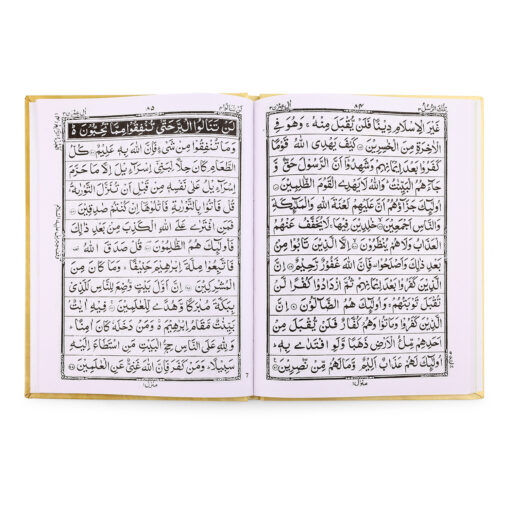 تِلْكَ الرُّسُلُ ٣
٨٤
اٰلِ عِمْرٰن ٣
غَيْرَ الْاِسْلَامِ دِيْنًا فَلَنْ يُّقْبَلَ مِنْهُ ۚ وَهُوَ فِى
الْاٰخِرَةِ مِنَ الْخٰسِرِيْنَ ۝ كَيْفَ يَهْدِى اللّٰهُ قَوْمًا
كَفَرُوْا بَعْدَ اِيْمَانِهِمْ وَشَهِدُوْٓا اَنَّ الرَّسُوْلَ حَقٌّ وَّ
جَآءَهُمُ الْبَيِّنٰتُ ؕ وَاللّٰهُ لَا يَهْدِى الْقَوْمَ الظّٰلِمِيْنَ ۝
اُولٰٓئِكَ جَزَآؤُهُمْ اَنَّ عَلَيْهِمْ لَعْنَةَ اللّٰهِ وَالْمَلٰٓئِكَةِ
وَالنَّاسِ اَجْمَعِيْنَ ۝ خٰلِدِيْنَ فِيْهَا ۚ لَا يُخَفَّفُ عَنْهُمُ
الْعَذَابُ وَلَا هُمْ يُنْظَرُوْنَ ۝ اِلَّا الَّذِيْنَ تَابُوْا مِنْۢ
بَعْدِ ذٰلِكَ وَاَصْلَحُوْا ۫ فَاِنَّ اللّٰهَ غَفُوْرٌ رَّحِيْمٌ ۝ اِنَّ
الَّذِيْنَ كَفَرُوْا بَعْدَ اِيْمَانِهِمْ ثُمَّ ازْدَادُوْا كُفْرًا لَّنْ
تُقْبَلَ تَوْبَتُهُمْ ۚ وَاُولٰٓئِكَ هُمُ الضَّآلُّوْنَ ۝ اِنَّ
الَّذِيْنَ كَفَرُوْا وَمَاتُوْا وَهُمْ كُفَّارٌ فَلَنْ يُّقْبَلَ مِنْ
اَحَدِهِمْ مِّلْءُ الْاَرْضِ ذَهَبًا وَّلَوِ افْتَدٰى بِهٖ ؕ
اُولٰٓئِكَ لَهُمْ عَذَابٌ اَلِيْمٌ وَّمَا لَهُمْ مِّنْ نّٰصِرِيْنَ ۝
منزل ١
لَنْ تَنَالُوا ٤
٨٥
اٰلِ عِمْرٰن ٣
لَنْ تَنَالُوا الْبِرَّ حَتّٰى تُنْفِقُوْا مِمَّا تُحِبُّوْنَ ؕ
وَمَا تُنْفِقُوْا مِنْ شَىْءٍ فَاِنَّ اللّٰهَ بِهٖ عَلِيْمٌ ۝ كُلُّ
الطَّعَامِ كَانَ حِلًّا لِّبَنِىْٓ اِسْرَآءِيْلَ اِلَّا مَا حَرَّمَ
اِسْرَآءِيْلُ عَلٰى نَفْسِهٖ مِنْ قَبْلِ اَنْ تُنَزَّلَ التَّوْرٰىةُ ؕ
قُلْ فَاْتُوْا بِالتَّوْرٰىةِ فَاتْلُوْهَآ اِنْ كُنْتُمْ صٰدِقِيْنَ ۝
فَمَنِ افْتَرٰى عَلَى اللّٰهِ الْكَذِبَ مِنْۢ بَعْدِ ذٰلِكَ
فَاُولٰٓئِكَ هُمُ الظّٰلِمُوْنَ ۝ قُلْ صَدَقَ اللّٰهُ ۫
فَاتَّبِعُوْا مِلَّةَ اِبْرٰهِيْمَ حَنِيْفًا ؕ وَمَا كَانَ مِنَ
الْمُشْرِكِيْنَ ۝ اِنَّ اَوَّلَ بَيْتٍ وُّضِعَ لِلنَّاسِ لَلَّذِىْ
بِبَكَّةَ مُبٰرَكًا وَّهُدًى لِّلْعٰلَمِيْنَ ۝ فِيْهِ اٰيٰتٌۢ
بَيِّنٰتٌ مَّقَامُ اِبْرٰهِيْمَ ۚ وَمَنْ دَخَلَهٗ كَانَ اٰمِنًا ؕ
وَلِلّٰهِ عَلَى النَّاسِ حِجُّ الْبَيْتِ مَنِ اسْتَطَاعَ اِلَيْهِ
سَبِيْلًا ؕ وَمَنْ كَفَرَ فَاِنَّ اللّٰهَ غَنِىٌّ عَنِ الْعٰلَمِيْنَ ۝
منزل ١